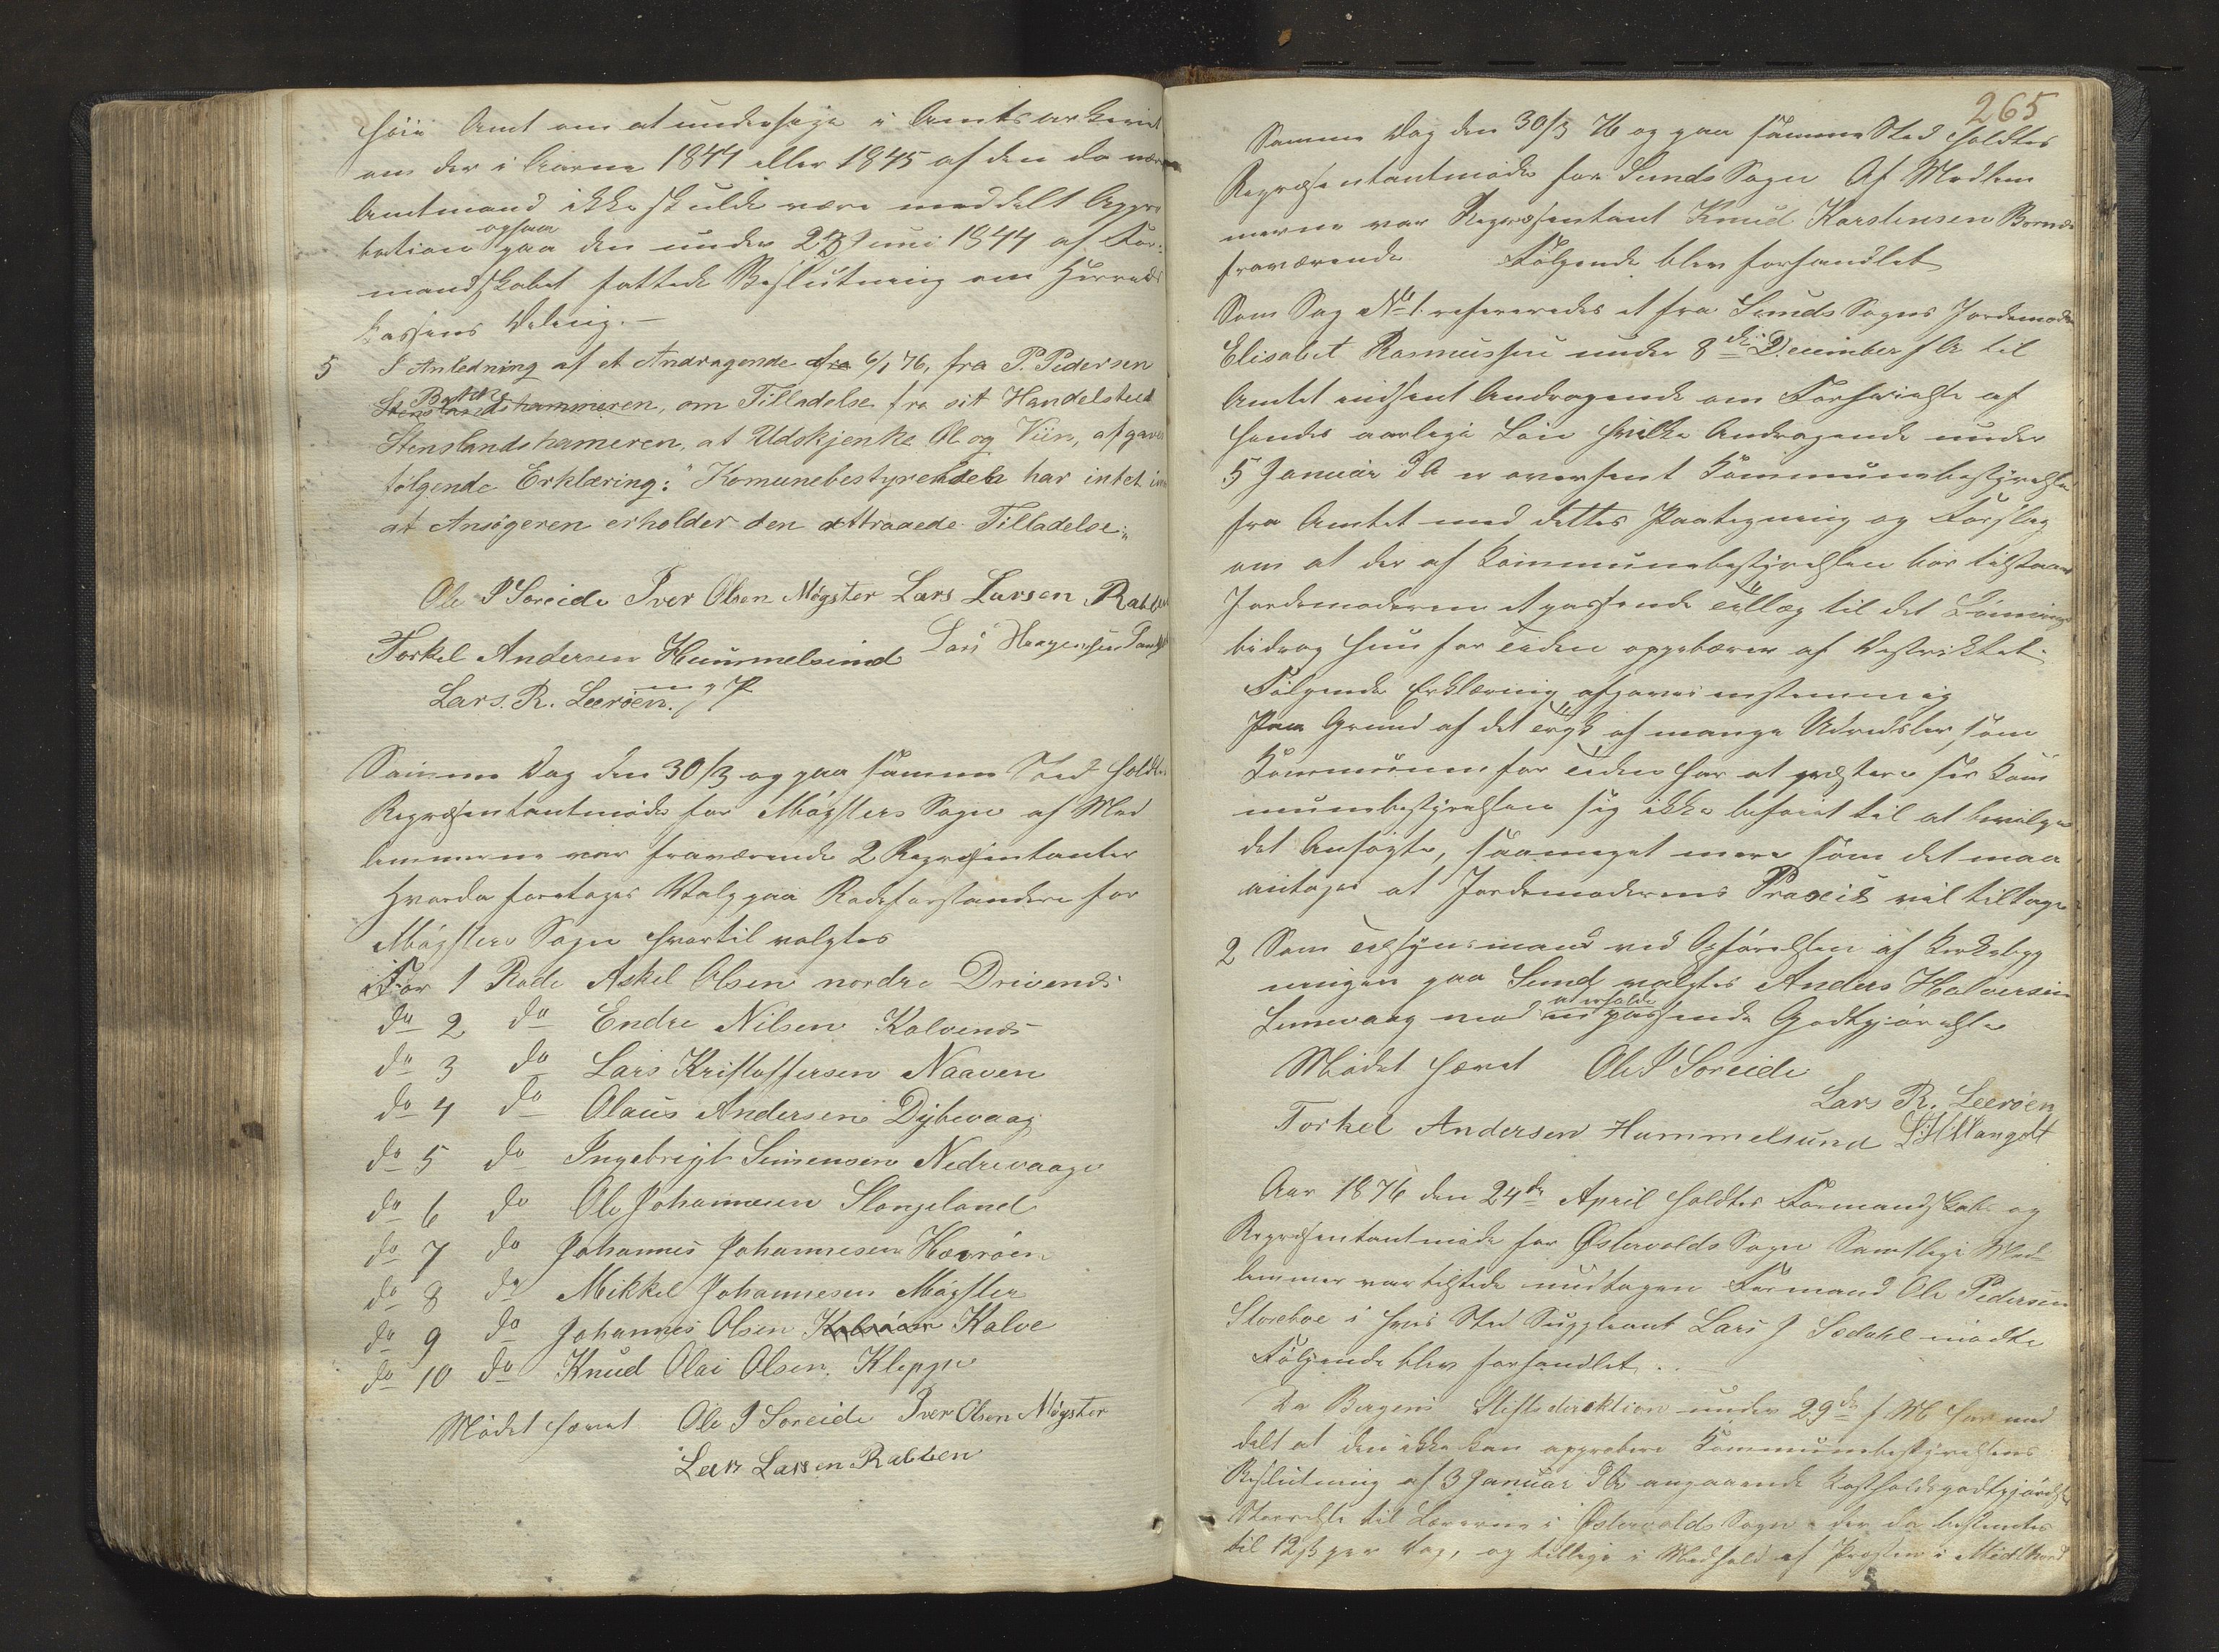 høie Amt om at undersøge i Amtsarkivet
om der i Aarene 1844 eller 1845 af den da vær
Amtmand ikke skulde være meddelt Appro
bation ogsaa paa den under 28 Juni 1844 af For-
mandskabet fattede Beslutning om Herreds
kassens Deling.—
5 I Anledning af et Andragende 6/1 76, fra P. Pedersen
Stenslandshammeren, om Tilladelse fra sit Handelsted
Stenslandshameren, at Udskjenke Öl og Viin, afgaves
følgende Erklæring: "Komunebestyrelsen har intet im
at Ansögeren erholder den attraaede Tilladelse"
Ole P Soreide Iver Olsen Mögster Lars Larsen Rabben
Torkel Andersen Hummelsund
Lars. R. Leeröen.
Samme Dag den 30/3 og paa samme Sted holdtes
Repræsentantmöde for Mögsters Sogn af Med
lemmerne var fraværende 2 Repræsentanter
Hvorda foretoges Valg paa Rodeforstandere for
Mögsters Sogn hvortil valgtes
For 1 Rode Askel Olsen nordre Drivenes
do 2 do Endre Nilsen Kalvenes
do 3 do Lars Kristoffersen Naaven
do 4 do Olaus Andersen Dybevaag
do 5 do Ingebrigt Simensen Nedrevaage
do 6 do Ole Johannesen Stangeland
do 7 do Johannes Johannesen Hevröen
do 8 do Mikkel Johannesen Mögster
do 9 do Johannes Olsen Kalve
do 10 do Knud Olai Olsen Kleppe
Mödet hævet Ole P Soreide Iver Olsen Mögster
Lars Larsen Rabben
265
Samme Dag den 30/3 76 og paa samme Sted holdtes
Repræsentantmöde for Sunds Sogn Af Medlem
merne var Repræsentant Knud Karstensen Bornes
fraværende Fölgende blev forhandlet
Som Sag No 1 refereredes et fra Sunds Sogns Jordemoder
Elisabet Rasmussen under 8de December f A til
Amtet indsent Andragende om Forhöielse af
hendes aarlige Lön hvilke Andragende under
5 Januar d A er oversent Kommunebestyrelsen
fra Amtet med dettes Paategning og Forslag
om at der af Kommunebestyrelsen bör tilstaaes
Jordemoderen et passende Tillæg til det Lönnings
bidrag hun for Tiden oppebærer af Distriktet.
Fölgende Erklæring afgaves enstemmig
Paa Grund af det Tryk af mange Udredsler, som
Kommunen for Tiden har at præstere ser Kom
munebestyrelsen sig ikke beföiet til at bevilge
det Ansögte, saameget mere som det maa
antages at Jordemoderens Praxis vil tiltage
2 Som Tilsynsmand ved Opförelsen af Kirkebyg
ningen paa Sund valgtes Anders Halversen
Lunevaag mod at erholde en passende Godtgjörelse
Mödet hævet Ole P Soreide
Lars R. Leeröen
Torkel Andersen Hummelsund
Aar 1876 den 24de April holdtes Formandskabs og
Repræsentantmöde for Østervolds Sogn Samtlige Med-
lemmer var tilstede undtagen Formand Ole Pedersen
Storeboe i hvis Sted Suppleant Lars J Sedahl mödte
Fölgende blev forhandlet.
Da Bergens Stiftsdirektion under 29de f M har med
delt at den ikke kan approbere Kommunebestyrelsens
Beslutning af 3 Januar d A angaaende Kostholdsgodtgjörelses
Störrelse til Lærerne i Østervolds Sogn - der da bestemtes
til 12 ß per Dag, og tillige i Medhold af Provsten i Midthord